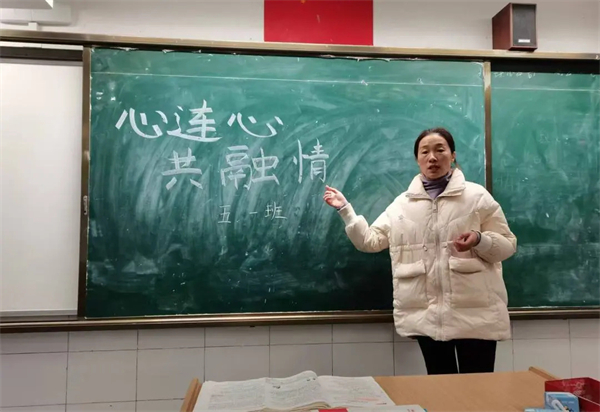 心连心
共融情
五一班